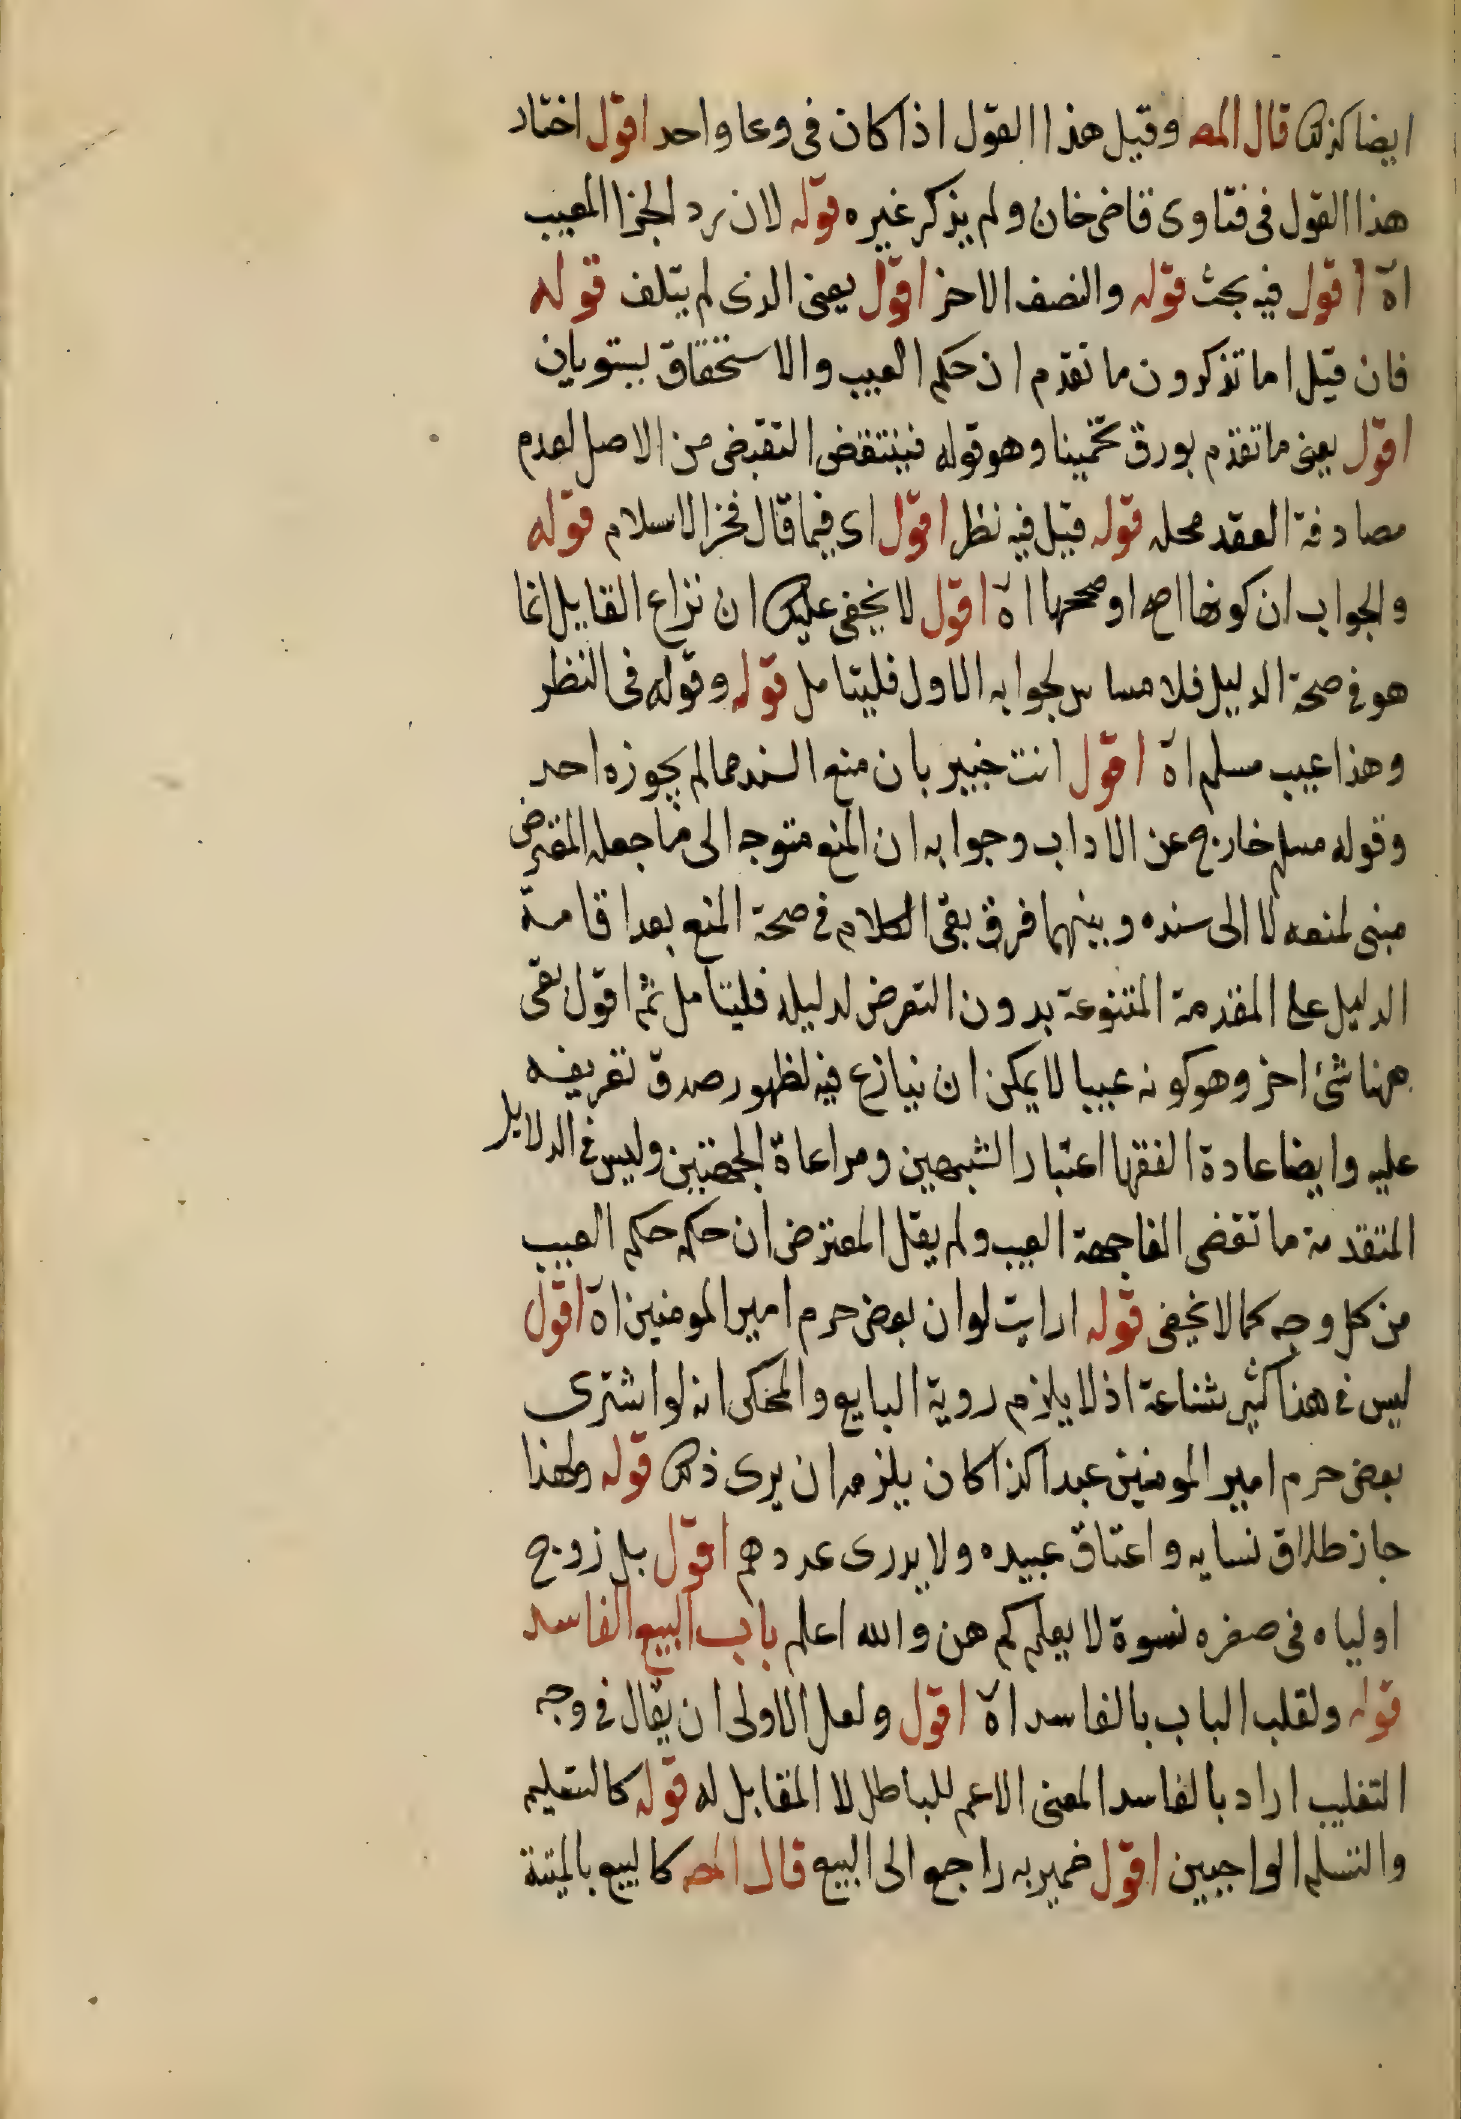 ايضا كذلك قال المص وقيل هذا القول اذا كان في وعا واحد اقول اختار
هذا القول في فتاوى قاضي خان ولم يذكر غيره قوله لان برد الجزا المعيب
اه اقول فيه بحث قوله والنصف الاخر اقول يعني الذي لم يتلف قوله
فان قيل اما تذكرون ما تقدم ان حكم العيب والاستحقاق يستويان
اقول يعني ما تقدم بورق تخمينا وهو قوله فينتقض القبض من الاصل لعدم
مصادفة العقد محله قوله قيل فيه نظر اقول اى فيما قال فخر الاسلام قوله
والجواب ان كونها اصح او صححها اه اقول لا يخفى عليك ان نزاع القايل انما
هو في صحة الدليل فلا مساس لجوابه الاول فليتامل قوله وقوله في النظر
وهذا عيب مسلم اه اقول انت خبير بان منع السند مما لم يجوزه احد
وقوله مسلم خارج عن الاداب وجوابه ان المنع متوجه الى ما جعله المعترض
مبنى لمنعه لا الى سنده وبينهما فرق بقى الكلام في صحة المنع بعد اقامة
الدليل على المقدمة الممنوعة بدون التعرض لدليله فليتامل ثم اقول بقى
ههنا شئ اخر وهو كونه عيبا لا يمكن ان ينازع فيه لظهور صدق تعريفه
عليه وايضا عادة الفقها اعتبار الشبهين ومراعاة الجهتين وليس في الدلايل
المتقدمة ما تقضى الغا جهة العيب ولم يقل المعترض ان حكمه حكم العيب
من كل وجه كما لا يخفى قوله ارايت لو ان بعض حرم امير المومنين اه اقول
ليس في هذا كثير شناعة اذ لا يلزم روية البايع والمحكى انه لو اشترى
بعض حرم امير المومنين عبدا كذا كان يلزمه ان يرى ذلك قوله ولهذا
جاز طلاق نسايه واعتاق عبيده ولا يدرى عددهم اقول بل زوج
اولياه في صغره نسوة لا يعلم كم هن والله اعلم باب البيع الفاسد
قوله ولقلب الباب بالفاسد اه اقول ولعل الاولى ان يقال في وجه
التغليب اراد بالفاسد المعنى الاعم للباطل لا المقابل له قوله كالتعليم
والتسلم الواجبين اقول ضمير به راجع الى البيع قال المص كالبيع بالميتة